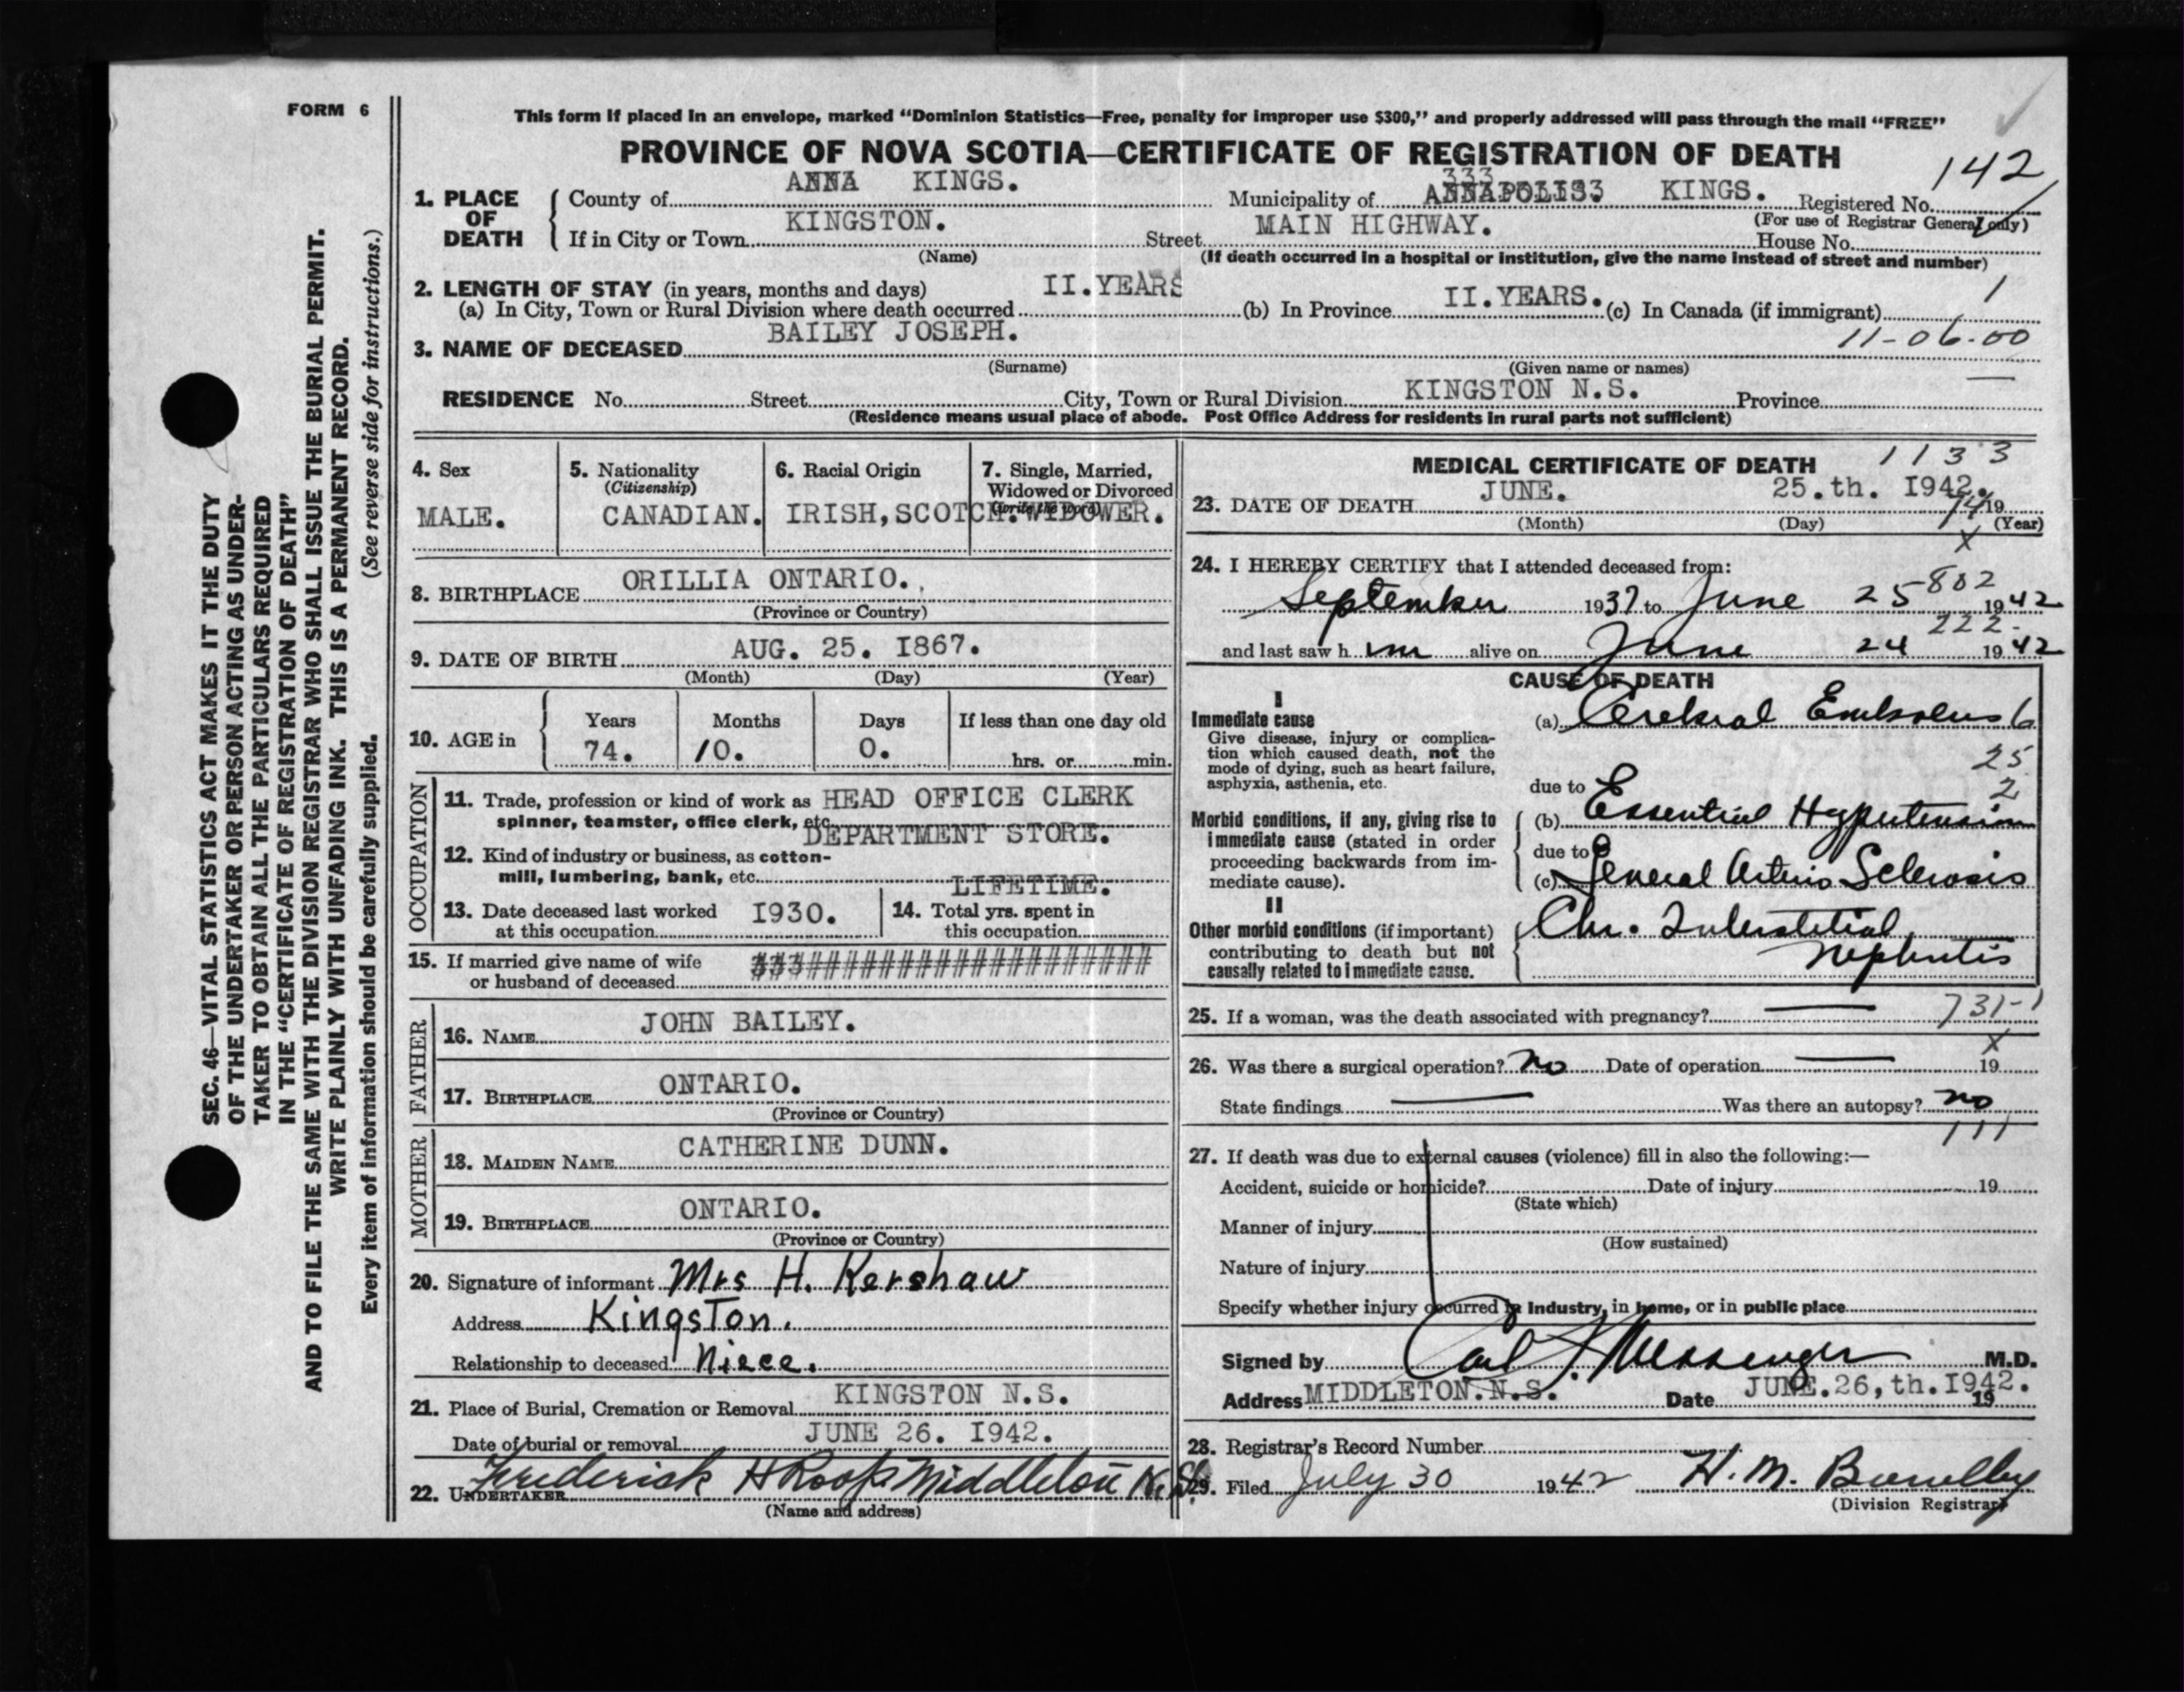 FORM 6
This form if placed in an envelope, marked "Dominion Statistics—Free, penalty for improper use $300," and properly addressed will pass through the mail "FREE"
PROVINCE OF NOVA SCOTIA—CERTIFICATE OF REGISTRATION OF DEATH
142
1. PLACE OF DEATH County of ANNA KINGS. Municipality of ANNAPOLIS KINGS. Registered No.
(For use of Registrar General only)
If in City or Town KINGSTON. Street MAIN HIGHWAY. House No.
(Name) (If death occurred in a hospital or institution, give the name instead of street and number)
2. LENGTH OF STAY (in years, months and days)
(a) In City, Town or Rural Division where death occurred II.YEARS (b) In Province II.YEARS. (c) In Canada (if immigrant) 1
3. NAME OF DECEASED BAILEY JOSEPH. 11-06-00
(Surname) (Given name or names)
RESIDENCE No. Street City, Town or Rural Division KINGSTON N.S. Province
(Residence means usual place of abode. Post Office Address for residents in rural parts not sufficient)
4. Sex MALE.
5. Nationality (Citizenship) CANADIAN.
6. Racial Origin IRISH, SCOTCH.
7. Single, Married, Widowed or Divorced (write the word) WIDOWER.
8. BIRTHPLACE ORILLIA ONTARIO.
(Province or Country)
9. DATE OF BIRTH AUG. 25. I867.
(Month) (Day) (Year)
10. AGE in Years 74. Months 10. Days 0. If less than one day old hrs. or min.
OCCUPATION
11. Trade, profession or kind of work as HEAD OFFICE CLERK
spinner, teamster, office clerk, etc. DEPARTMENT STORE.
12. Kind of industry or business, as cotton-
mill, lumbering, bank, etc.
13. Date deceased last worked at this occupation I930.
14. Total yrs. spent in this occupation LIFETIME.
15. If married give name of wife or husband of deceased ######################
FATHER
16. NAME JOHN BAILEY.
17. BIRTHPLACE ONTARIO.
(Province or Country)
MOTHER
18. MAIDEN NAME CATHERINE DUNN.
19. BIRTHPLACE ONTARIO.
(Province or Country)
20. Signature of informant Mrs H. Kershaw
Address Kingston.
Relationship to deceased Niece.
21. Place of Burial, Cremation or Removal KINGSTON N.S.
Date of burial or removal JUNE 26. I942.
22. UNDERTAKER Frederick H Roop Middleton N.S.
(Name and address)
MEDICAL CERTIFICATE OF DEATH 1133
23. DATE OF DEATH JUNE. 25.th. I942. 19
(Month) (Day) (Year)
24. I HEREBY CERTIFY that I attended deceased from:
802
September 1937 to June 25 1942
222
and last saw h im alive on June 24 1942
CAUSE OF DEATH
I
Immediate cause
Give disease, injury or complica-
tion which caused death, not the
mode of dying, such as heart failure,
asphyxia, asthenia, etc.
(a) Cerebral Embolus 6
25
2
due to
Morbid conditions, if any, giving rise to
immediate cause (stated in order
proceeding backwards from im-
mediate cause).
(b) Essential Hypertension
due to
(c) General Arterio Sclerosis
II
Other morbid conditions (if important)
contributing to death but not
causally related to immediate cause.
Chr. Interstitial
Nephritis
25. If a woman, was the death associated with pregnancy? 731-1
x
26. Was there a surgical operation? no Date of operation 19
State findings Was there an autopsy? no
111
27. If death was due to external causes (violence) fill in also the following:—
Accident, suicide or homicide? Date of injury 19
(State which)
Manner of injury
(How sustained)
Nature of injury
Specify whether injury occurred in Industry, in home, or in public place
Signed by Carl F. Messenger M.D.
Address MIDDLETON.N.S. Date JUNE.26,th.I942. 19
28. Registrar's Record Number
29. Filed July 30 1942 H. M.
(Division Registrar)
SEC. 46—VITAL STATISTICS ACT MAKES IT THE DUTY
OF THE UNDERTAKER OR PERSON ACTING AS UNDER-
TAKER TO OBTAIN ALL THE PARTICULARS REQUIRED
IN THE "CERTIFICATE OF REGISTRATION OF DEATH"
AND TO FILE THE SAME WITH THE DIVISION REGISTRAR WHO SHALL ISSUE THE BURIAL PERMIT.
WRITE PLAINLY WITH UNFADING INK. THIS IS A PERMANENT RECORD.
Every item of information should be carefully supplied. (See reverse side for instructions.)